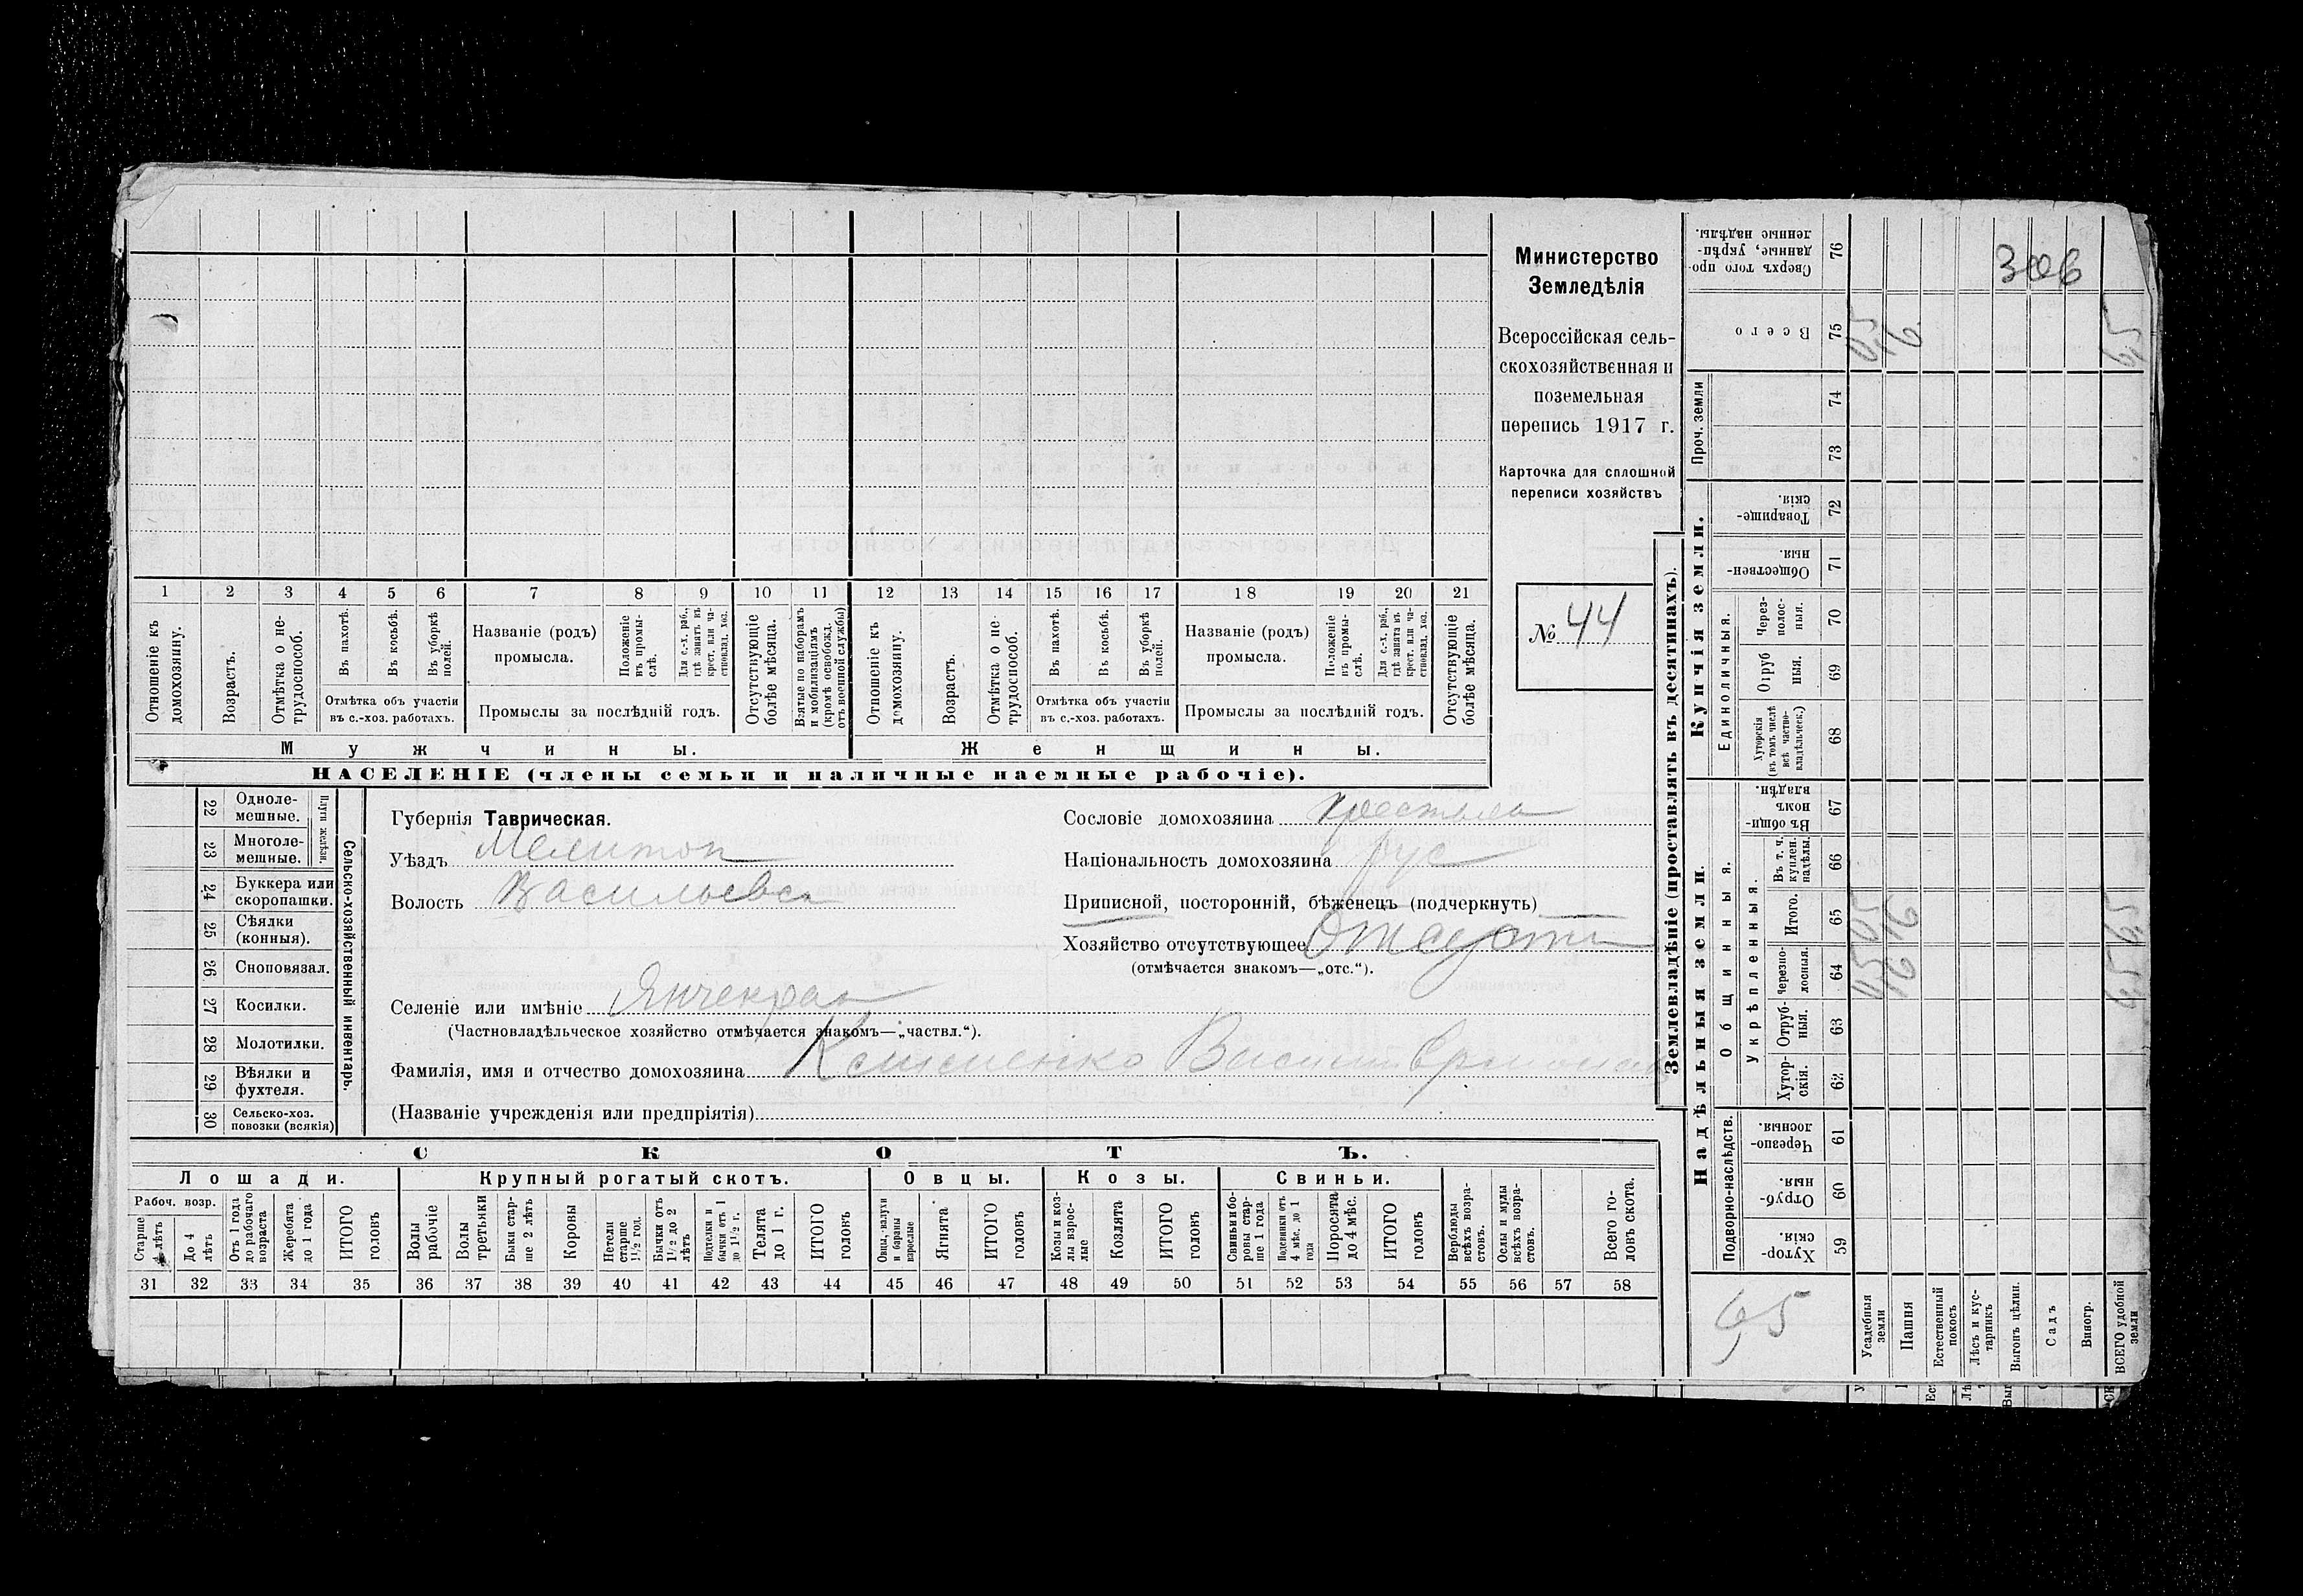 1 2 3 4 5 6 7 8 9 10 11 12 13 14 15 16 17 18 19 20 21
Отношеніе къ домохозяину.
Возрастъ.
Отмѣтка о нетрудоспособ.
Въ пахотѣ.
Въ косьбѣ.
Въ уборкѣ полей.
Отмѣтка объ участіи въ с.-хоз. работахъ.
Названіе (родъ) промысла.
Положеніе въ промыслѣ.
Для с.-х. раб., гдѣ занятъ въ крест. или частновлад. хоз.
Промыслы за послѣдній годъ.
Отсутствующіе болѣе мѣсяца.
Взятые по наборамъ и мобилизаціямъ (кромѣ освобожд. отъ военной службы)
Отношеніе къ домохозяину.
Возрастъ.
Отмѣтка о нетрудоспособ.
Въ пахотѣ.
Въ косьбѣ.
Въ уборкѣ полей.
Отмѣтка объ участіи въ с.-хоз. работахъ.
Названіе (родъ) промысла.
Положеніе въ промыслѣ.
Для с.-х. раб., гдѣ занята въ крест. или частновлад. хоз.
Промыслы за послѣдній годъ.
Отсутствующіе болѣе мѣсяца.
Мужчины.
Женщины.
НАСЕЛЕНІЕ (члены семьи и наличные наемные рабочіе).
Министерство
Земледѣлія
Всероссійская сель-
скохозяйственная и
поземельная
перепись 1917 г.
Карточка для сплошной
переписи хозяйствъ
№ 44
22 Одноле-
мешные.
23 Многоле-
мешные.
Плуги желѣзн.
24 Буккера или
скоропашки.
25 Сѣялки
(конныя).
26 Сноповязал.
27 Косилки.
28 Молотилки.
29 Вѣялки и
фухтеля.
30 Сельско-хоз.
повозки (всякія)
Сельско-хозяйственный инвентарь.
Губернія Таврическая.
Уѣздъ Мелитоп
Волость Васильевск
Селеніе или имѣніе Янчекрак
(Частновладѣльческое хозяйство отмѣчается знакомъ—„частвл.“).
Фамилія, имя и отчество домохозяина
(Названіе учрежденія или предпріятія)
Сословіе домохозяина
Національность домохозяина рус
Приписной, посторонній, бѣженецъ (подчеркнуть)
Хозяйство отсутствующее
(отмѣчается знакомъ—„отс.“).
СКОТЪ.
Лошади.
Крупный рогатый скотъ.
Овцы.
Козы.
Свиньи.
Рабоч. возр.
Старше 4 лѣтъ
До 4 лѣтъ
Отъ 1 года до рабочаго возраста
Жеребята до 1 года
ИТОГО головъ
Волы рабочіе
Волы третьяки
Быки старше 2 лѣтъ
Коровы
Нетели старше 1½ год.
Бычки отъ 1½ до 2 лѣтъ
Подтелки и бычки отъ 1 до 1½ г.
Телята до 1 г.
ИТОГО головъ
Овцы, валухи и бараны взрослые
Ягнята
ИТОГО головъ
Козы и козлы взрослые
Козлята
ИТОГО головъ
Свиньи и боровы старше 1 года
Подсвинки отъ 4 мѣс. до 1 года
Поросята до 4 мѣс.
ИТОГО головъ
Верблюды всѣхъ возрастовъ.
Ослы и мулы всѣхъ возрастовъ.
Всего головъ скота.
31 32 33 34 35 36 37 38 39 40 41 42 43 44 45 46 47 48 49 50 51 52 53 54 55 56 57 58
Землевладѣніе (проставлять въ десятинахъ).
Купчія земли.
Надѣльныя земли.
Сверхъ того проданные, укрѣпленные надѣлы. 76
306
Всего 75
Проч. земли
74
73
Товарищескія. 72
Общественныя. 71
Единоличныя.
Черезполосныя. 70
Отрубныя. 69
Хуторскія (въ томъ числѣ всѣ частновладѣльческ.) 68
Общинныя.
Въ общинномъ владѣн. 67
Укрѣпленныя.
Въ т. ч. куплен. надѣлы. 66
Итого. 65
Черезполосныя. 64
Отрубныя. 63
Хуторскія. 62
Подворно-наслѣдств.
Черезполосныя. 61
Отрубныя. 60
Хуторскія. 59
Усадебныя земли
Пашня
Естественный покосъ
Лѣсъ и кустарникъ
Выгонъ цѣлин.
Садъ
Виногр.
ВСЕГО удобной земли